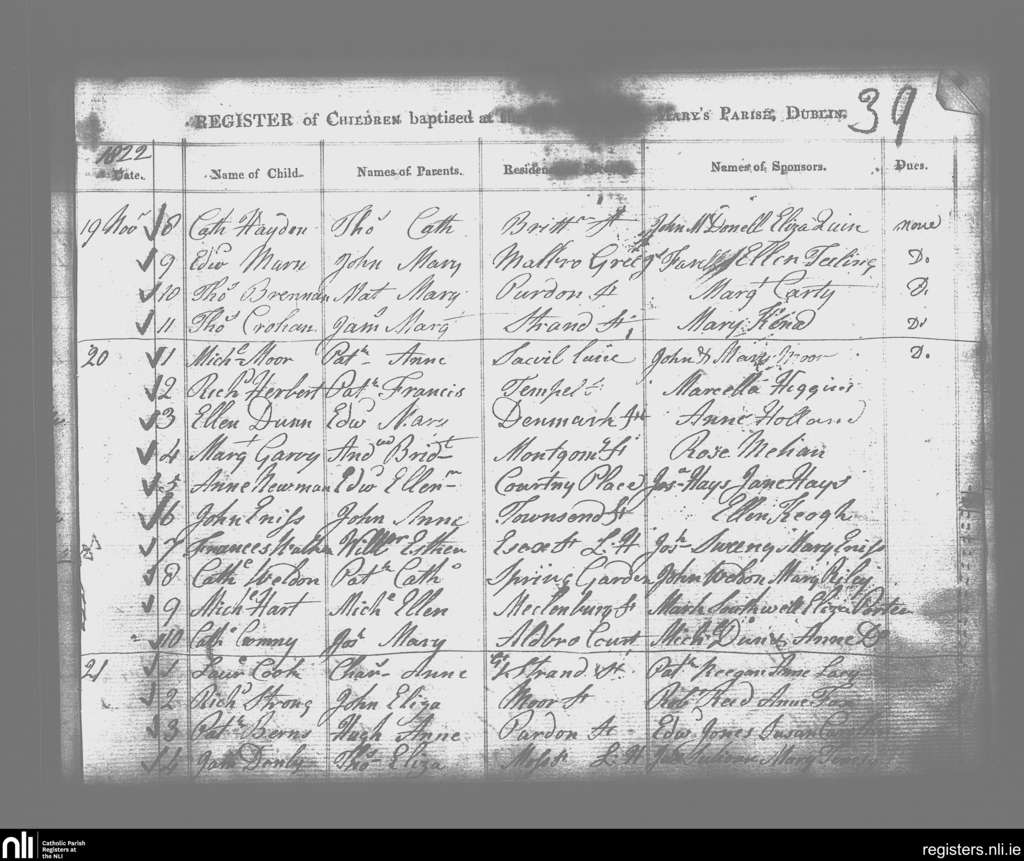 REGISTER of CHILDREN baptised at MARY'S PARISH, DUBLIN. 39
1822
Date. Name of Child. Names of Parents. Residence Names of Sponsors. Dues.
19 Novr 8 Cath Haydon Thos Cath Britt St John McDonell Eliza Quin none
9 Edw Marn John Mary Malbro Green Ellen Teeling D.
10 Thos Brennan Mat Mary Purdon St Margt Carty D.
11 Thos Crohan Jams Margt Strand St Mary D.
20 1 Michl Moor Patk Anne Sacvil Lane John & Mary Moor D.
2 Richd Herbert Patk Francis Templ Marcella Higgins
3 Ellen Dunn Edw Mary Denmark St Anne Holland
4 Margt Garvy Andw Bridt Montgomy St Rose Mehan
5 Anne Newman Edw Ellen Courtny Place Jos Hays Jane Hays
6 John Eniss John Anne Townsend St Ellen Keogh
7 Frances Willm Esther Esexx St L.H Josh Sweeny Mary Eniss
8 Cathe Weldon Patk Cath Spring Garden John Weldon Mary Riley
9 Michl Hart Michl Ellen Meclenburg St Mark Southwell Eliza Porter
10 Cath Josh Mary Aldbro Court Michl Dunn Anne Do
21 1 Laur Cook Chars Anne Gt Strand St Patk Keegan Anne Lacy
2 Richd Strong John Eliza Moor St Robt Reed Anne Fox
3 Patk Berns Hugh Anne Purdon St Edw Jones Susan
4 Jams Thos Eliza Moss St L.H Mary
nli Catholic Parish
Registers at
the NLI
registers.nli.ie